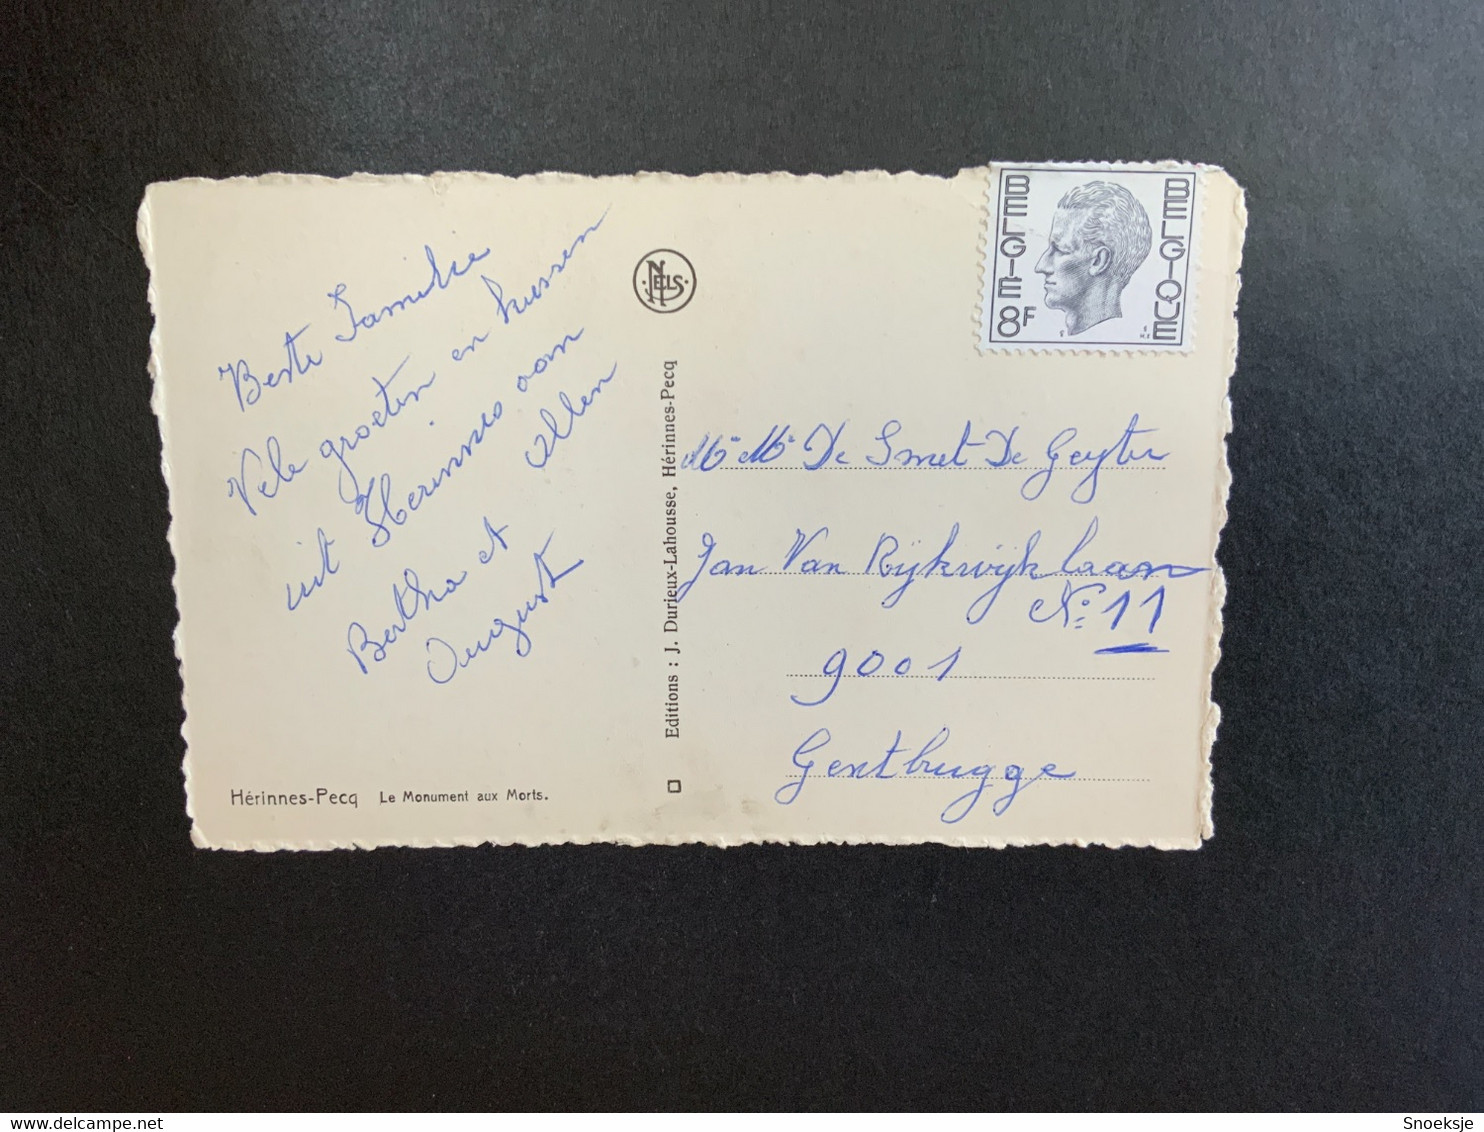 Beste Familie
Vele groeten en kussen
uit Herinnes aan
allen
Bertha et
August
Hérinnes-Pecq Le Monument aux Morts.
NELS
Editions : J. Durieux-Lahousse, Hérinnes-Pecq
BELGIE 8F
BELGIQUE
Mr Me De Smet De Geyter
Jan Van Rijkwijklaan
No 11
9001
Gentbrugge
delcampe.net
Snoeksje